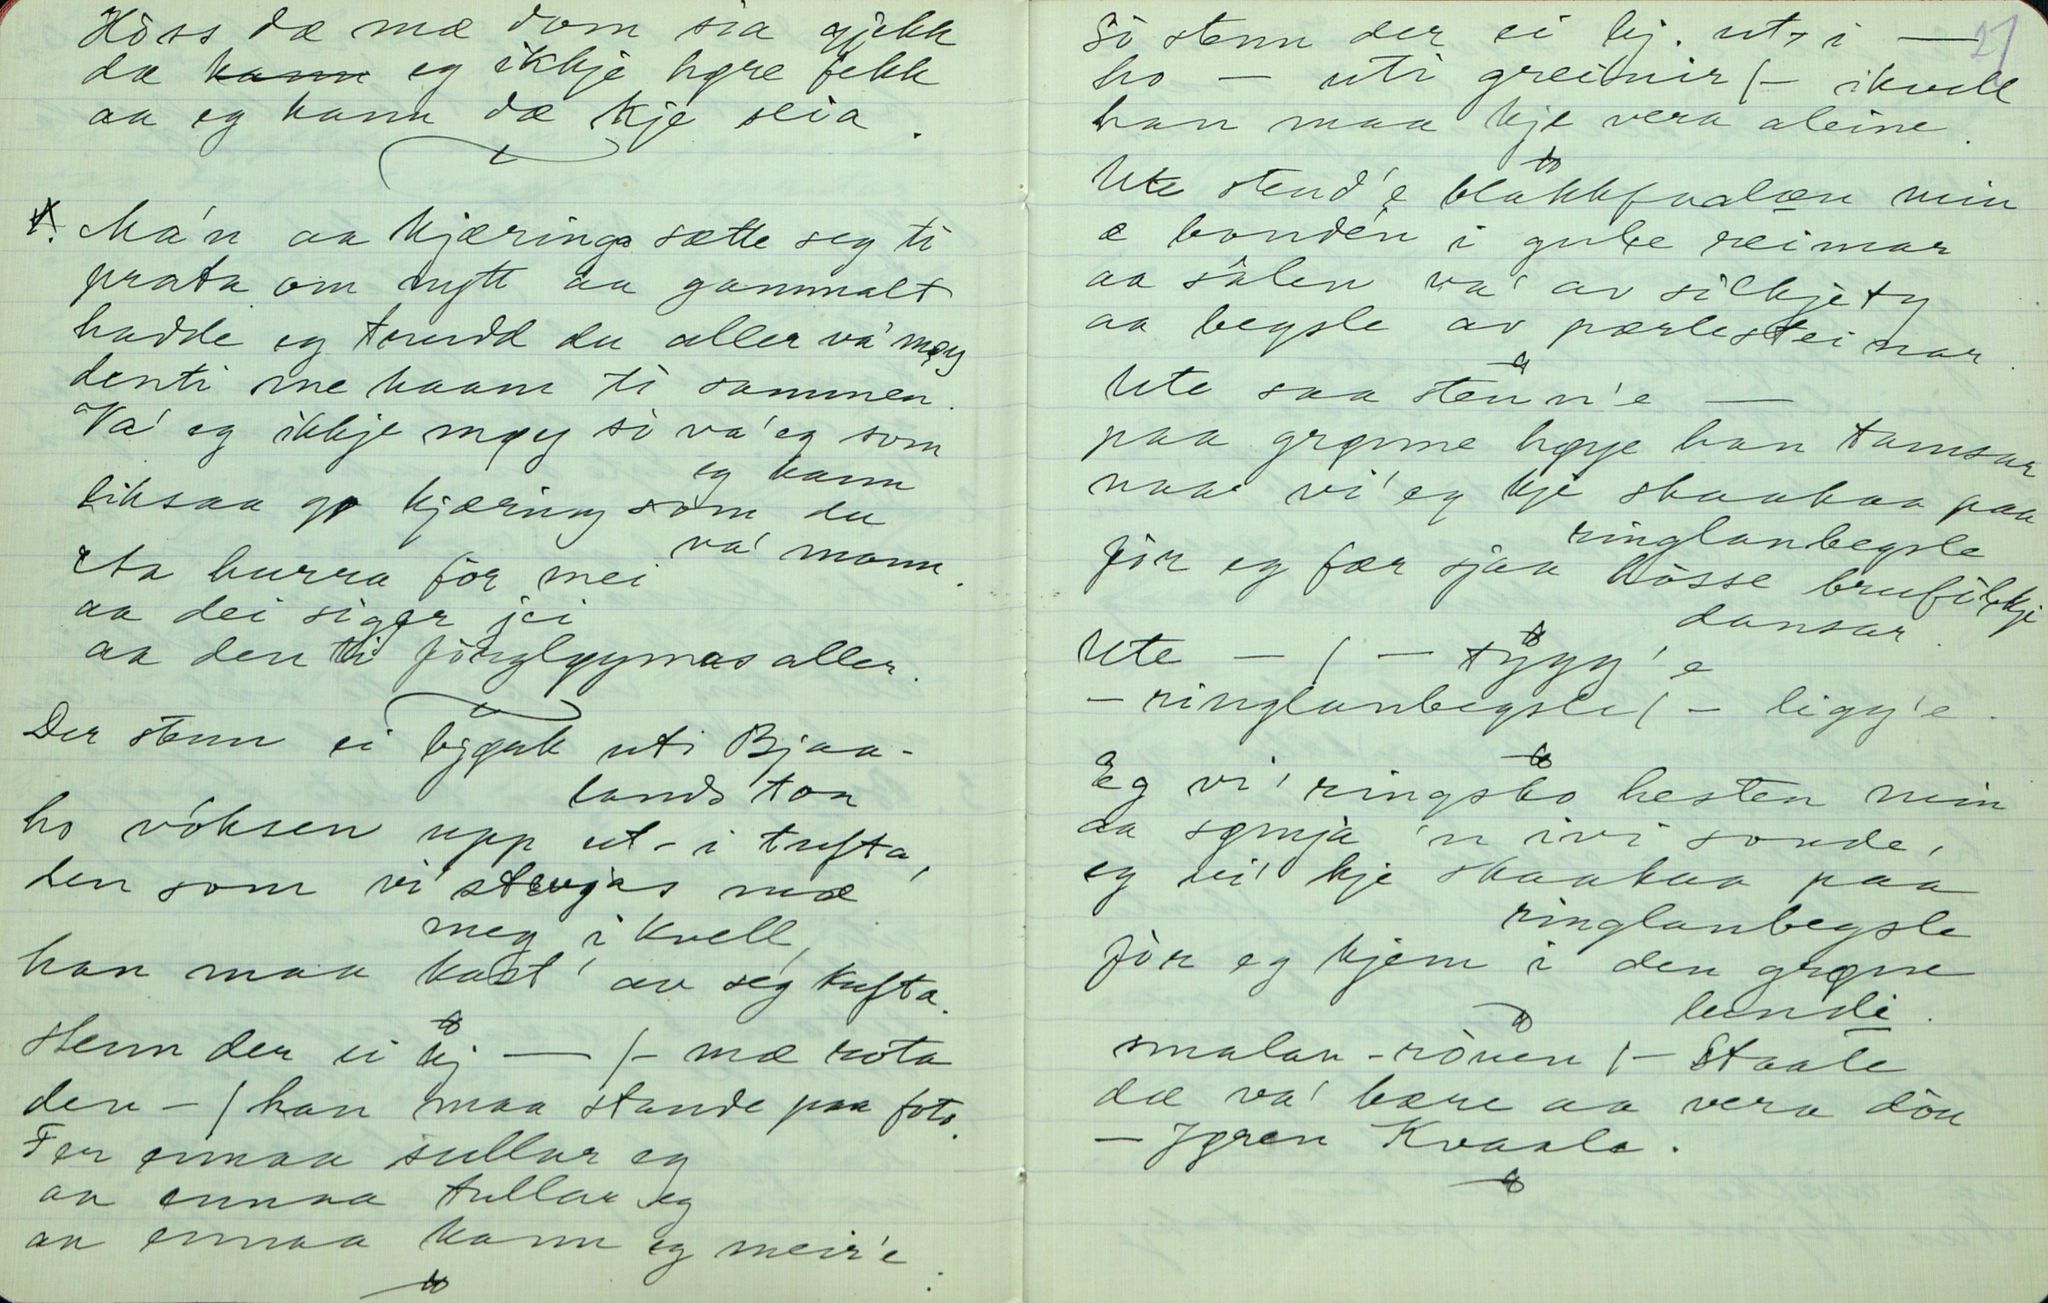 Hòss dæ mæ dom sia gjekk
dæ kann eg ikkje høre fekk
aa eg kann dæ kje seia.
Má'n aa kjæringa sætte seg ti
prata om nytt aa gammalt
hadde eg trudd du aller va' møy
denti me kaam ti sammen.
Va' eg ikkje møy sò va' eg som
eg kann
liksaa go kjæring som du
va' mann.
Aa hurra fòr mei
aa dei siger jei
aa den ti fòrgløymas aller.
Der stenn ei bjørk uti Bjaa-
lands ton
ho vòksen upp ut-i tufta,
den som vi' stevjas mæ
meg i kvell,
han maa kast' av seg kufta.
Stenn der ei bj — /- mæ rota
den - / han maa stande paa foto.
Fer ennaa sullar eg
aa ennaa tullar eg
aa ennaa kann eg meir'e.
21
Sò stenn der ei bj. ut-i —
ho — uti greinir /- ikvell
han maa kje vera aleine.
Ute stend'e blakkfoalæn min
æ bonden i gule reimar
aa sålen va' av silkjety
aa begsle av pærlesteinar.
Ute saa stenn'e —
paa grønne høye han tamsar
naa vi' eg kje skaakaa paa
ringlanbegsle
fòr eg fær sjaa hòsse brufòlkje
dansar.
Ute — / — tygg'e
- ringlanbegsle / - ligg'e.
Eg vi' ringsko hesten min
aa sømja 'n ivi sonde,
eg vi' kje skaakaa paa
ringlanbegsle
fòr eg kjem i den grøne
lundi.
smalan - ròven /- Staale
dæ va' bære aa vera dòu
— Jøren Kvaale.